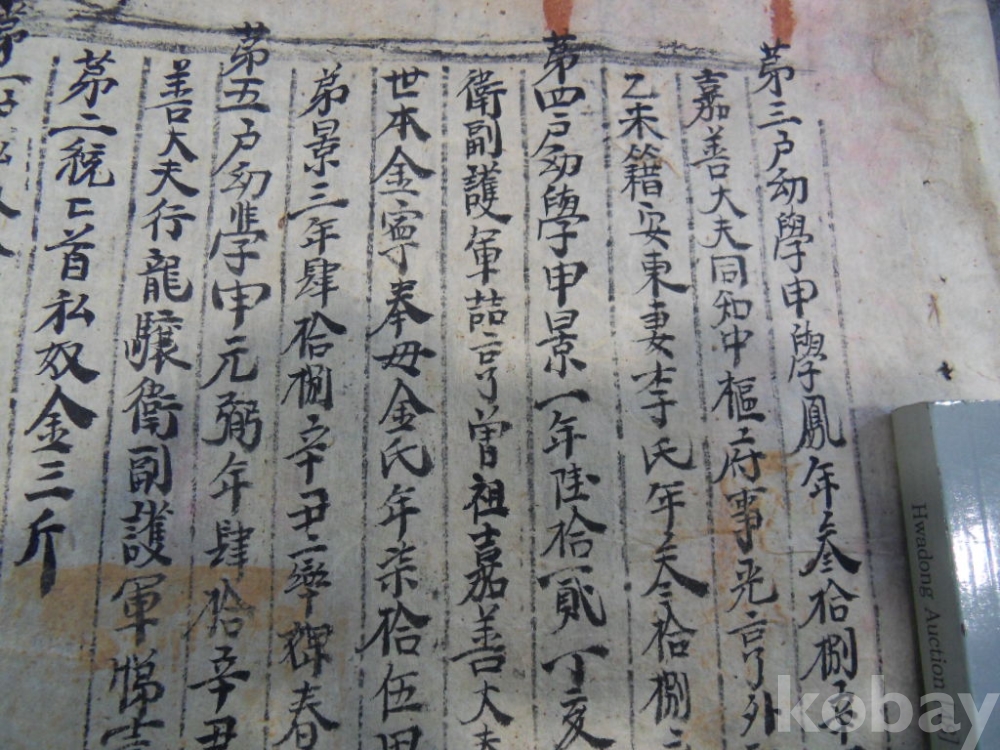 第三户幼學申學鳳年叄拾捌辛
嘉善大夫同知中樞府事光亨外
乙未籍安東妻李氏年叄拾捌
第四户幼學申景一年陸拾貳丁亥
衛副護軍喆亨曽祖嘉善大夫
世本金寧奉母金氏年柒拾伍甲
弟景三年肆拾捌辛丑率婢春
第五户幼學申元弼年肆拾辛丑
善大夫行龍驤衛副護軍
第二統統首私奴金三斤
Hwadong Auction
kobay